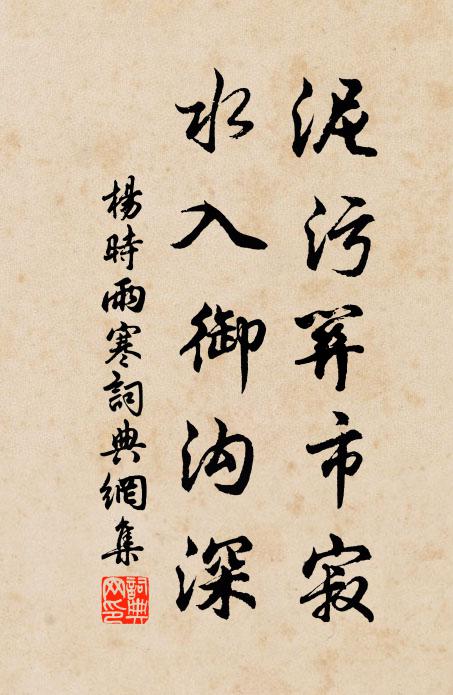 泥污關市寂
水入御沟深
楊時雨寒詞典網集
詞典
网印